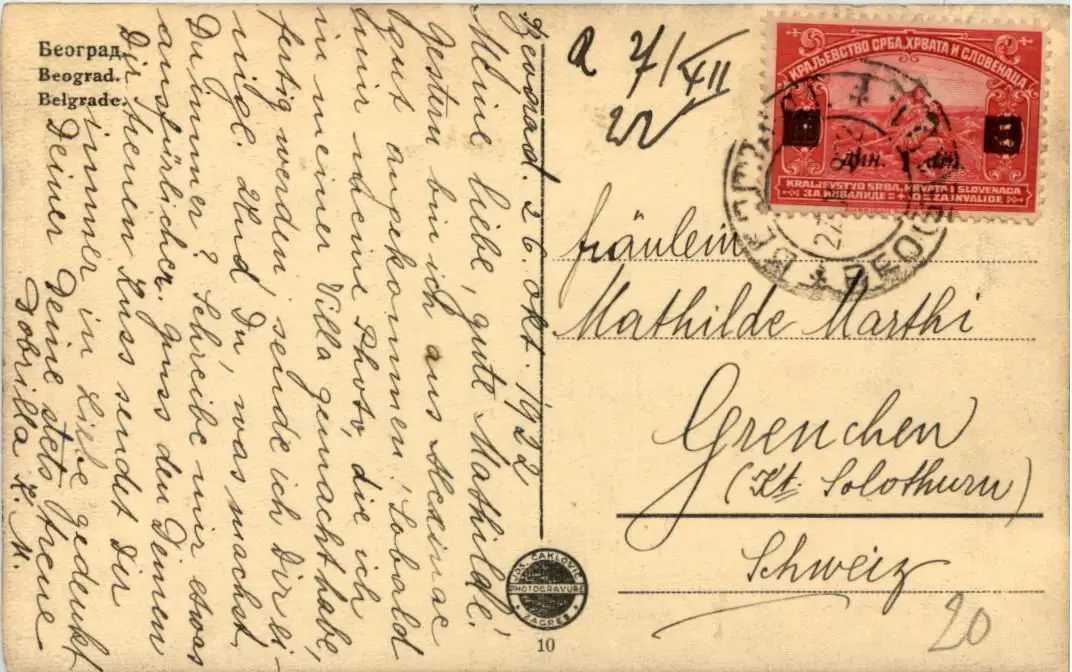 Београд.
Beograd.
Belgrade.
Beograd. 26. okt. 1922
Meine liebe, gute Mathilde!
Gestern bin ich aus Alexinac
gut angekommen. Sobald
mir deine Photo, die ich
in meiner Villa gemacht habe,
fertig werden, sende ich Dir ei-
nige. Und Du, was machst
Du immer? Schreibe mir etwas
ausfürlicher. Gruss den Deinen
Dir treuen Kuss sendet Dir
immer in Liebe gedenkt
Deiner Deine stets treue
Dobrilla K. M.
a 7/XII
22
КРАЉЕВСТВО СРБА, ХРВАТА И СЛОВЕНАЦА
дин.
KRALJEVSTVO SRBA, HRVATA I SLOVENACA
ЗА ИНВАЛИДЕ ZA INVALIDE
BEOGRAD
Fräulein
Mathilde Marthi
Grenchen
(Kt. Solothurn)
Schweiz
20
JOS. ČAKLOVIĆ
PHOTOGRAVURE
ZAGREB
10